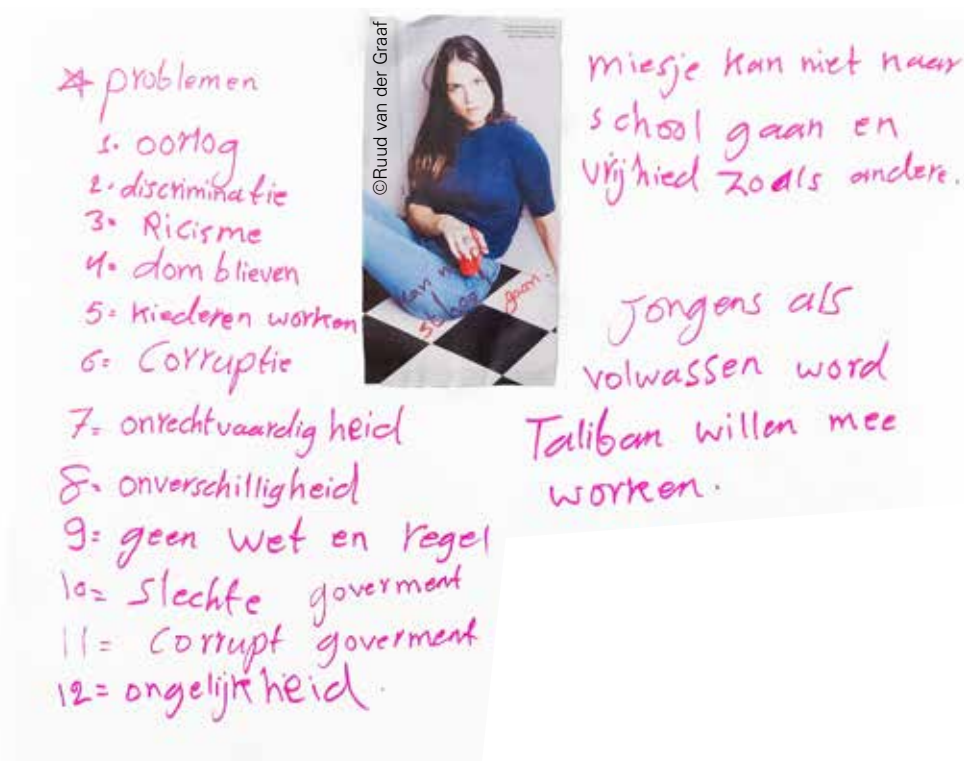 problemen
1. oorlog
2. discriminatie
3. Ricisme
4. dom blieven
5= kiederen worken
6= Corruptie
7= onrechtvaardig heid
8. onverschilligheid
9= geen wet en regel
10= Slechte goverment
11= Corrupt goverment
12= ongelijkheid.
©Ruud van der Graaf
kan
gaan.
miesje kan niet naar
school gaan en
vrijhied zoals andere.
Jongens als
volwassen word
Taliban willen mee
worken.